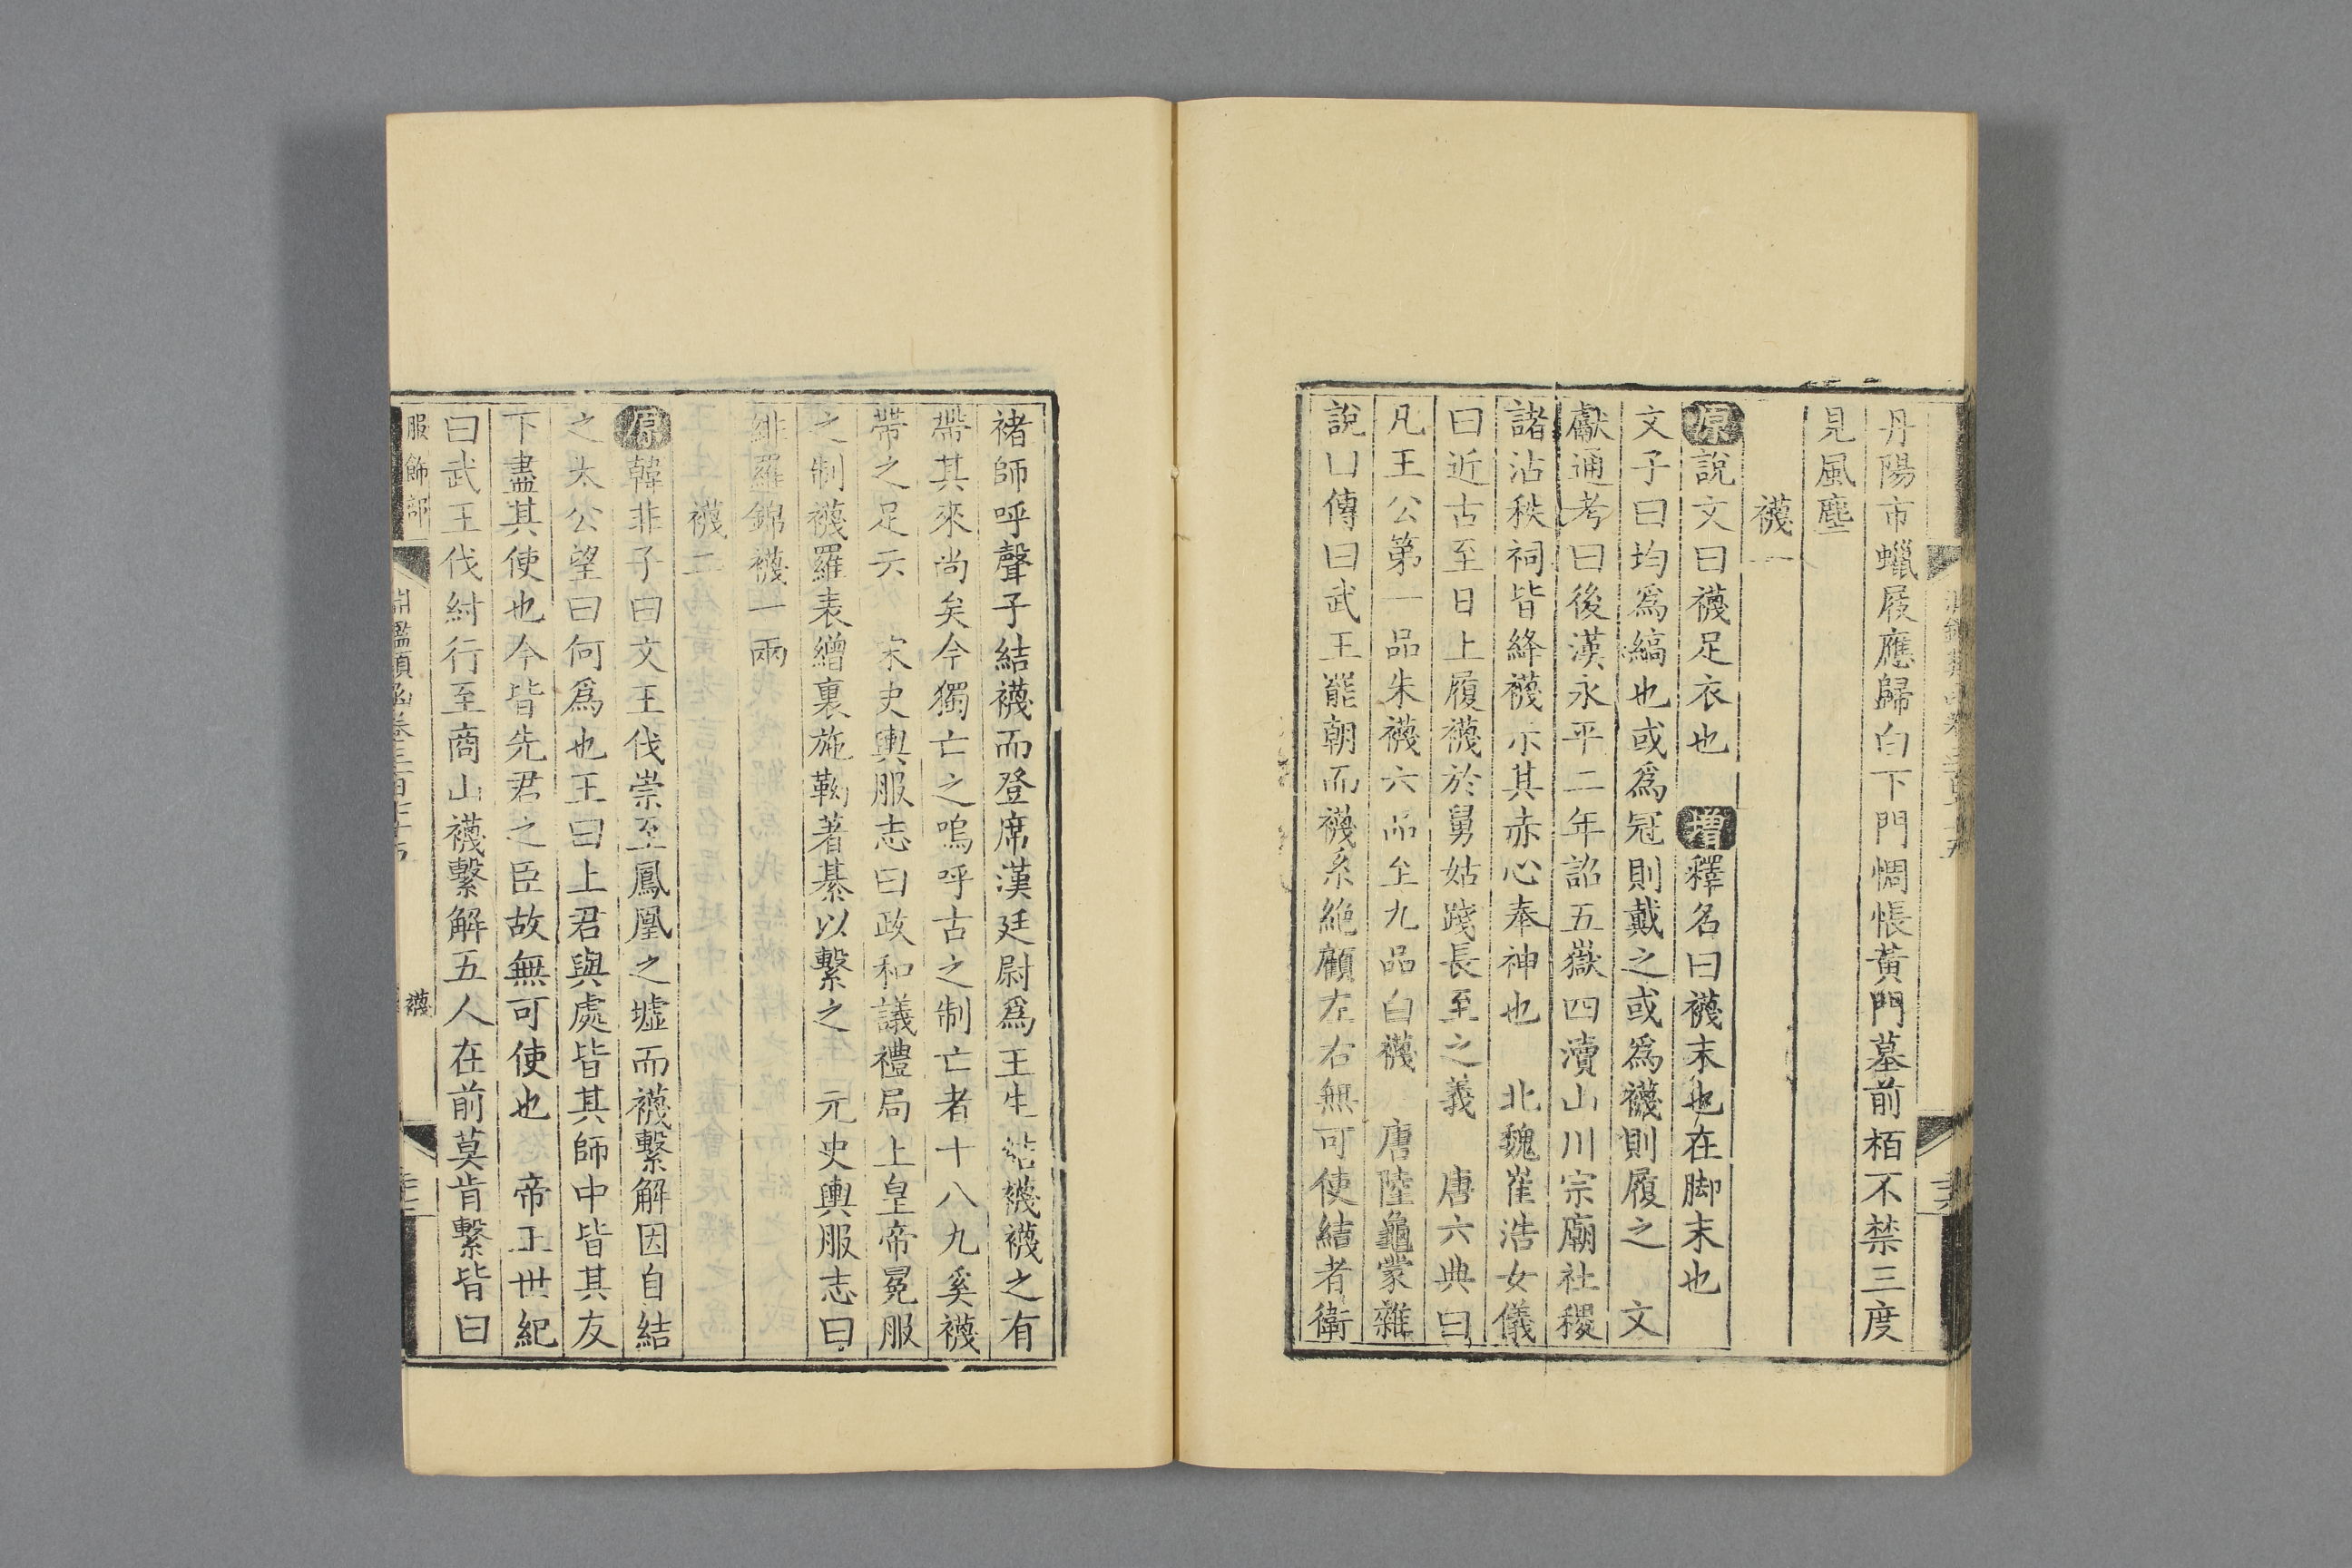 丹陽市蠟屐應歸白下門惆悵黃門墓前栢不禁三度
見風塵
襪一
原說文曰襪足衣也 增釋名曰襪末也在脚末也
文子曰均爲縞也或爲冠則戴之或爲襪則履之 文
獻通考曰後漢永平二年詔五嶽四瀆山川宗廟社稷
諸沾秩祠皆絳襪示其赤心奉神也 北魏崔浩女儀
曰近古至日上履襪於舅姑踐長至之義 唐六典曰
凡王公第一品朱襪六品至九品白襪 唐陸龜蒙雜
說曰傳曰武王罷朝而襪系絶顧左右無可使結者衛
褚師呼聲子結襪而登席漢廷尉爲王生結襪襪之有
帶其來尚矣今獨亡之嗚呼古之制亡者十八九奚襪
帶之足云 宋史輿服志曰政和議禮局上皇帝冕服
之制襪羅表繒裏施靿著綦以繫之 元史輿服志曰
緋羅錦襪一兩
襪二
原韓非子曰文王伐崇至鳳凰之墟而襪繫解因自結
之太公望曰何爲也王曰上君與處皆其師中皆其友
下盡其使也今皆先君之臣故無可使也 帝王世紀
曰武王伐紂行至商山襪繫解五人在前莫肯繫皆曰
服飾部
淵鑑類函卷三百七十五
襪